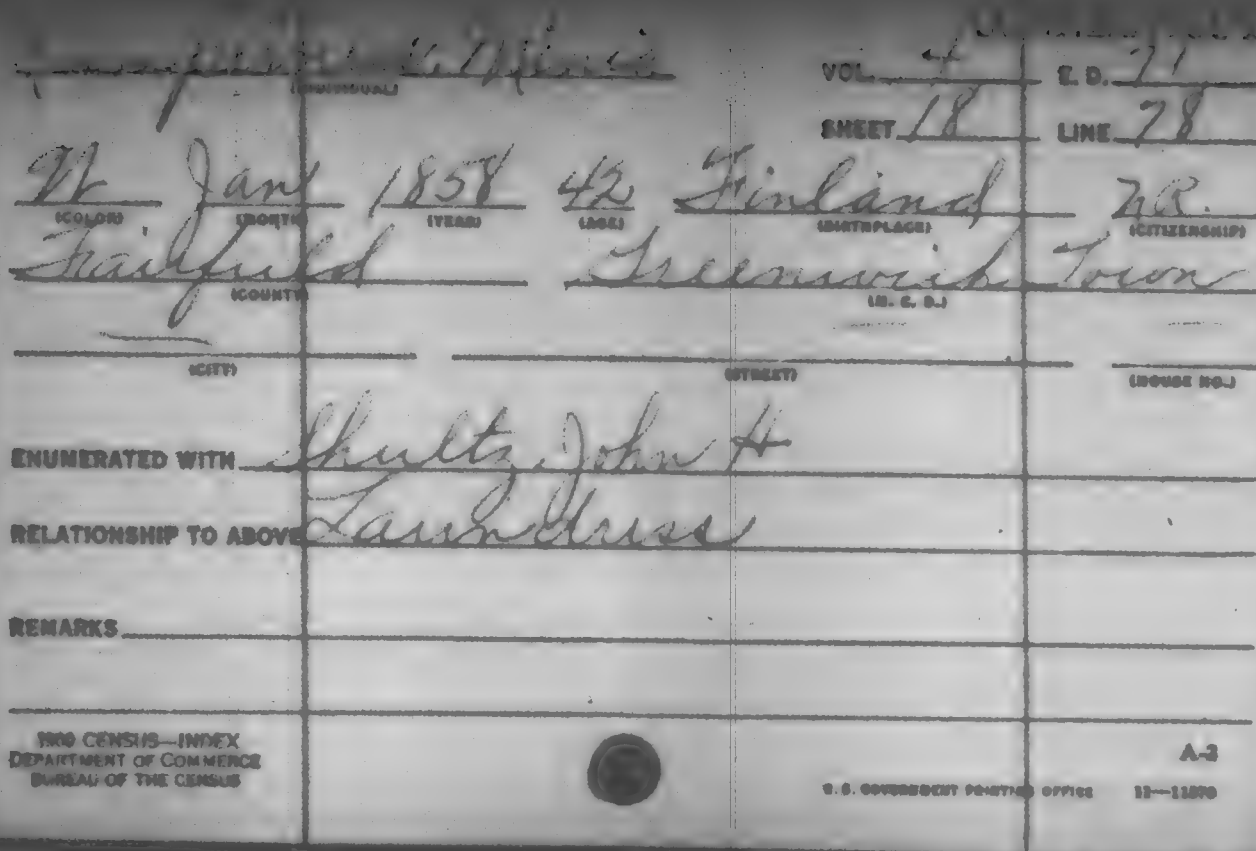 VOL. 4 E. D. 71
(INDIVIDUAL)
SHEET 18 LINE 78
W Jan 1858 42 Finland NR.
(COLOR) (MONTH) (YEAR) (AGE) (BIRTHPLACE) (CITIZENSHIP)
Fairfield Greenwich Town
(COUNTY) (M. C. D.)
(CITY) (STREET) (HOUSE NO.)
ENUMERATED WITH Shultz, John H
RELATIONSHIP TO ABOVE Laundress
REMARKS
1900 CENSUS—INDEX
DEPARTMENT OF COMMERCE
BUREAU OF THE CENSUS
A-2
U.S. GOVERNMENT PRINTING OFFICE 11—11570